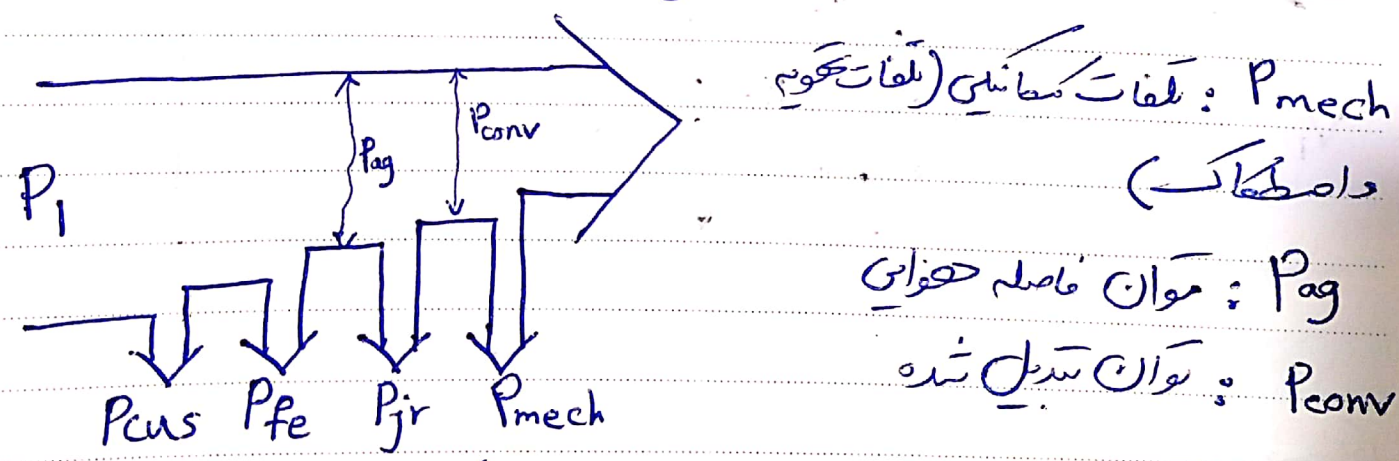 P1
Pag
Pconv
Pcus Pfe Pjr Pmech
Pmech : تلفات مکانیکی (تلفات تهویه
و اصطکاک)
Pag : توان فاصله هوایی
Pconv : توان تبدیل شده